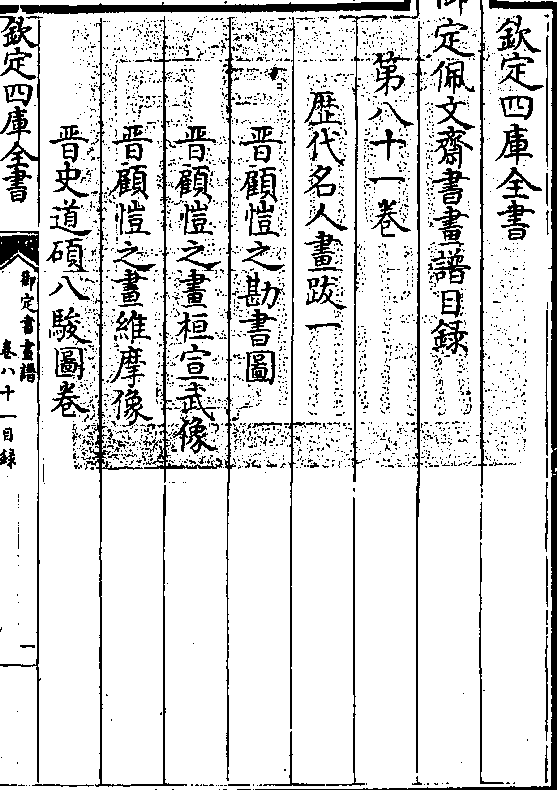 欽定四庫全書
御定佩文齋書畫譜目録
第八十一卷
歴代名人畫跋一
晋顧愷之勘書圖
晋顧愷之畫桓宣武像
晋顧愷之畫維摩像
晋史道碩八駿圖卷
欽定四庫全書
御定書畫譜
卷八十一目録
一